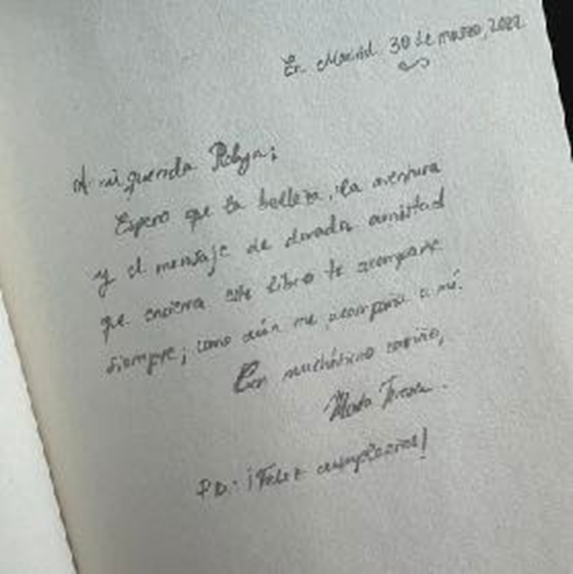 En Madrid 30 de marzo, 2022
A mi querida
Espero que la belleza, la aventura
y el mensaje de dorada amistad
que encierra este libro te acompañe
siempre; como aún me acompaña a mí.
Con muchísimo cariño,
Teresa.
PD.: ¡Feliz cumpleaños!